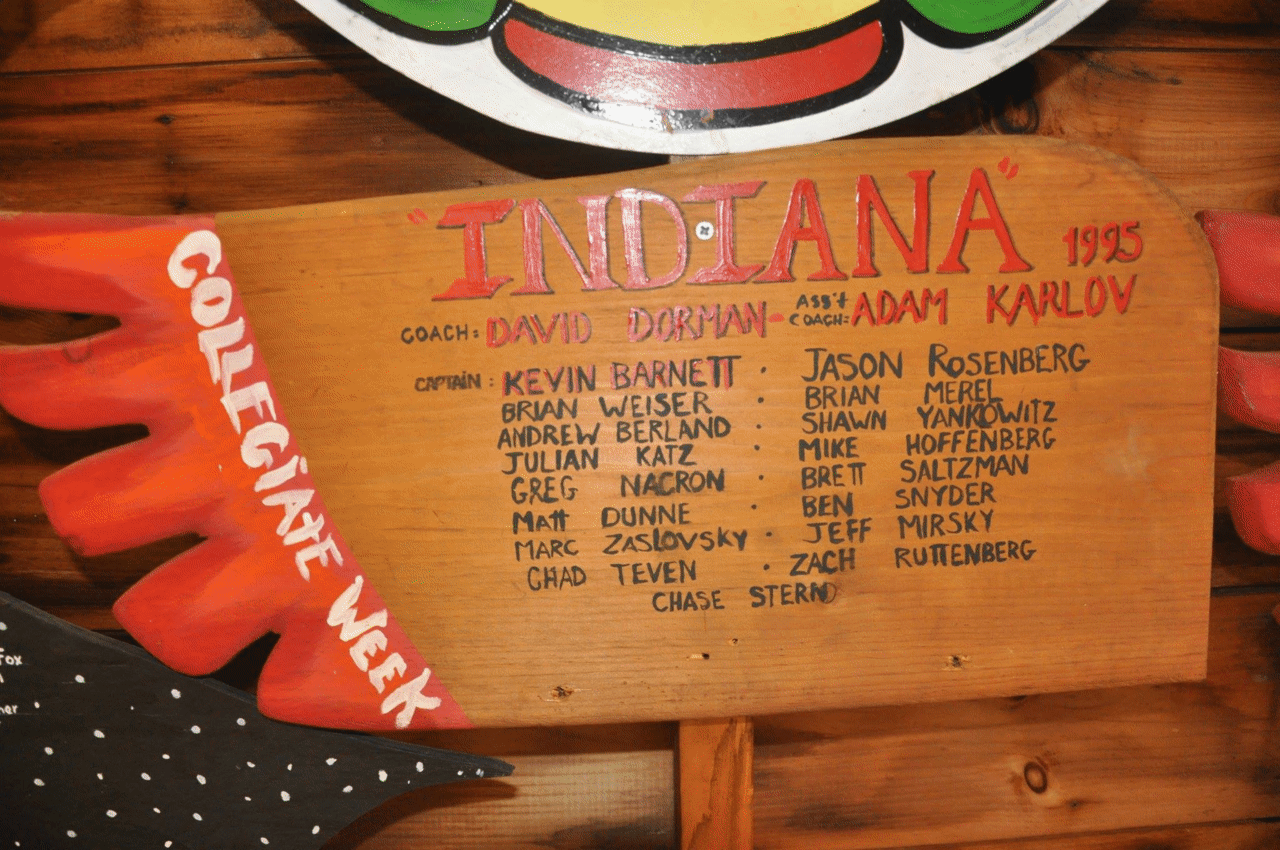 "INDIANA"
1995
COACH: DAVID DORMAN - ASS't COACH: ADAM KARLOV
CAPTAIN: KEVIN BARNETT · JASON ROSENBERG
BRIAN WEISER · BRIAN MEREL
ANDREW BERLAND · SHAWN YANKOWITZ
JULIAN KATZ · MIKE HOFFENBERG
GREG NACRON · BRETT SALTZMAN
MATT DUNNE · BEN SNYDER
MARC ZASLOVSKY · JEFF MIRSKY
CHAD TEVEN · ZACH RUTTENBERG
CHASE STERN
COLLEGIATE WEEK
Fox